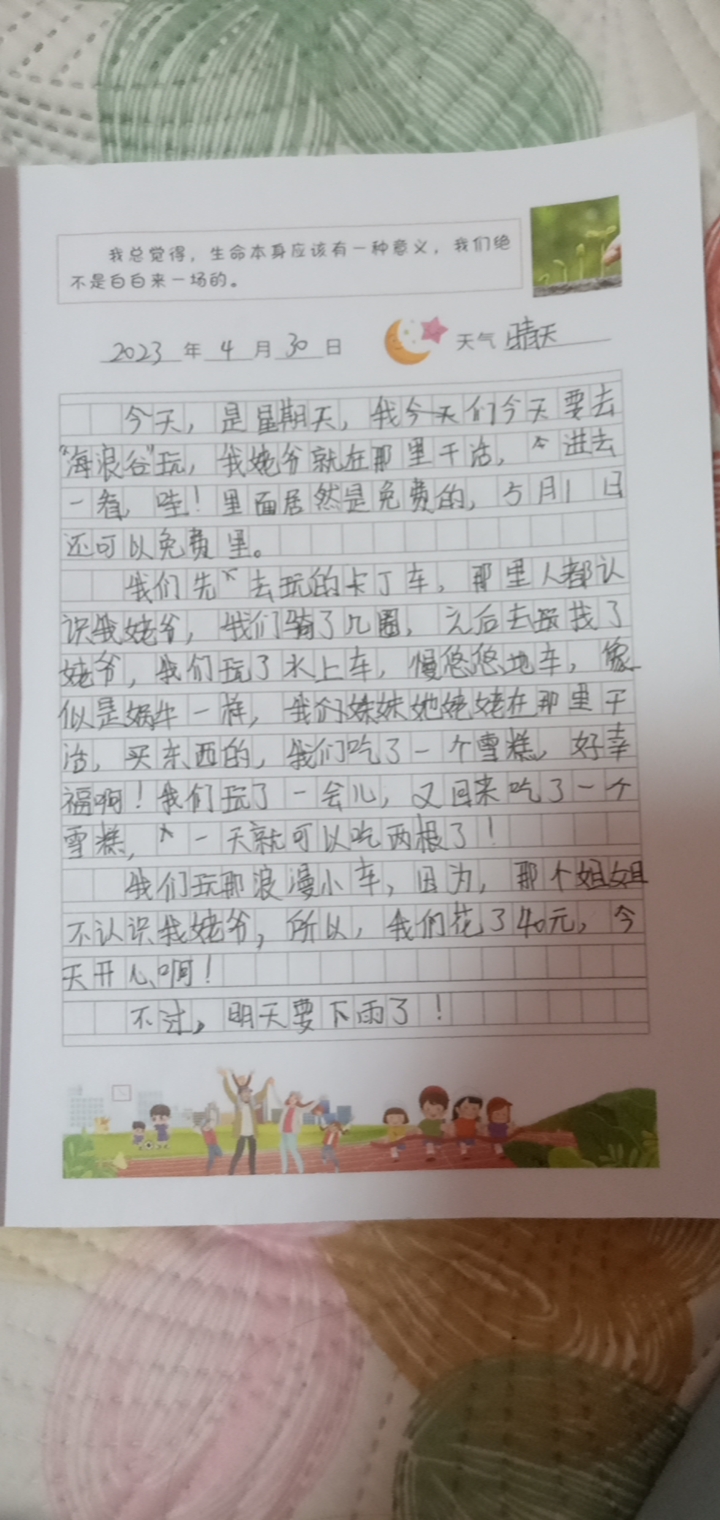 我总觉得，生命本身应该有一种意义，我们绝
不是白白来一场的。
2023年4月30日 天气 晴天
今天，是星期天，我今天们今天要去
“海浪谷”玩，我姥爷就在那里干活，进去
一看，哇！里面居然是免费的，5月1日
还可以免费里。
我们先去玩的卡丁车，那里人都认
识我姥爷，我们骑了几圈，之后去找了
姥爷，我们玩了水上车，慢悠悠地车，像
似是蜗牛一样，我们妹妹她姥姥在那里干
活，买东西的，我们吃了一个雪糕，好幸
福啊！我们玩了一会儿，又回来吃了一个
雪糕，一天就可以吃两根了！
我们玩那浪漫小车，因为，那个姐姐
不认识我姥爷，所以，我们花了40元，今
天开心啊！
不过，明天要下雨了！